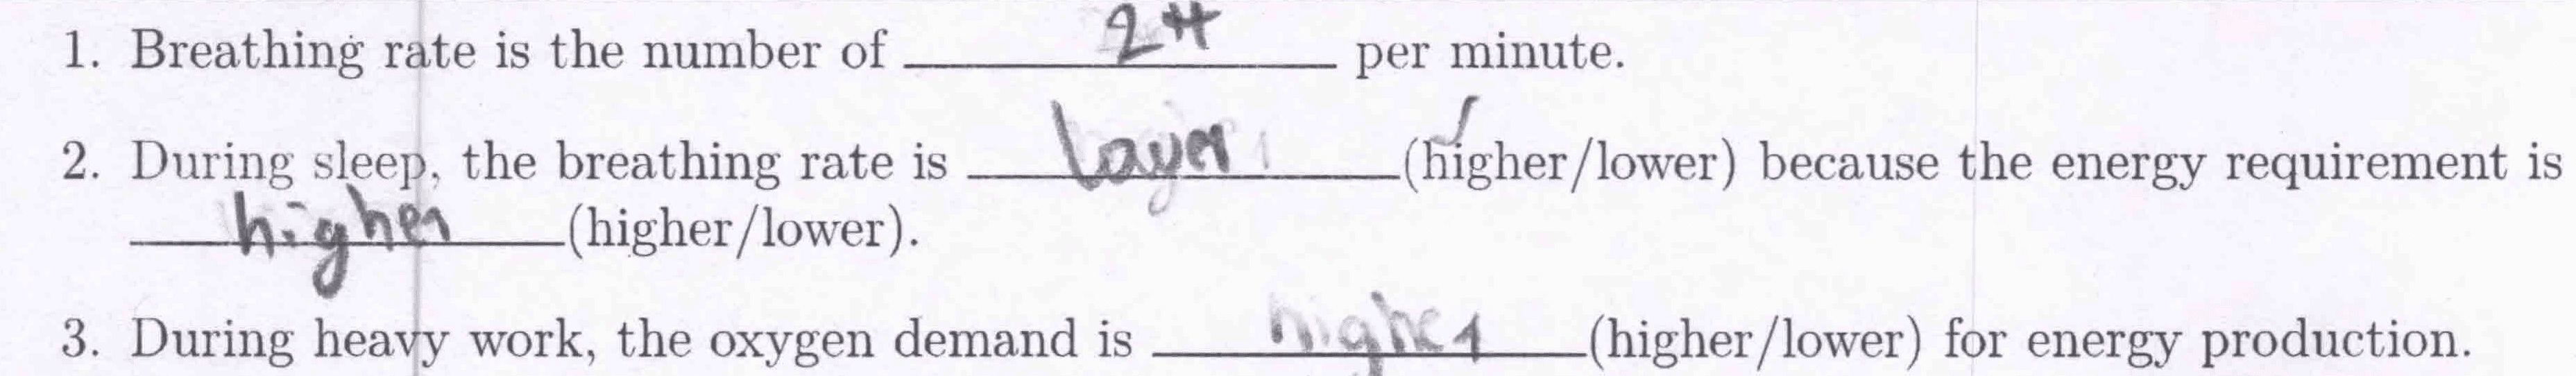 1. Breathing rate is the number of 24 per minute.
2. During sleep, the breathing rate is layer (higher/lower) because the energy requirement is
higher (higher/lower).
3. During heavy work, the oxygen demand is higher (higher/lower) for energy production.